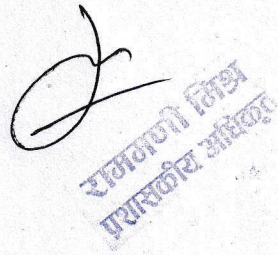 राममणी मिश्र
प्रशासकीय अधिकृत